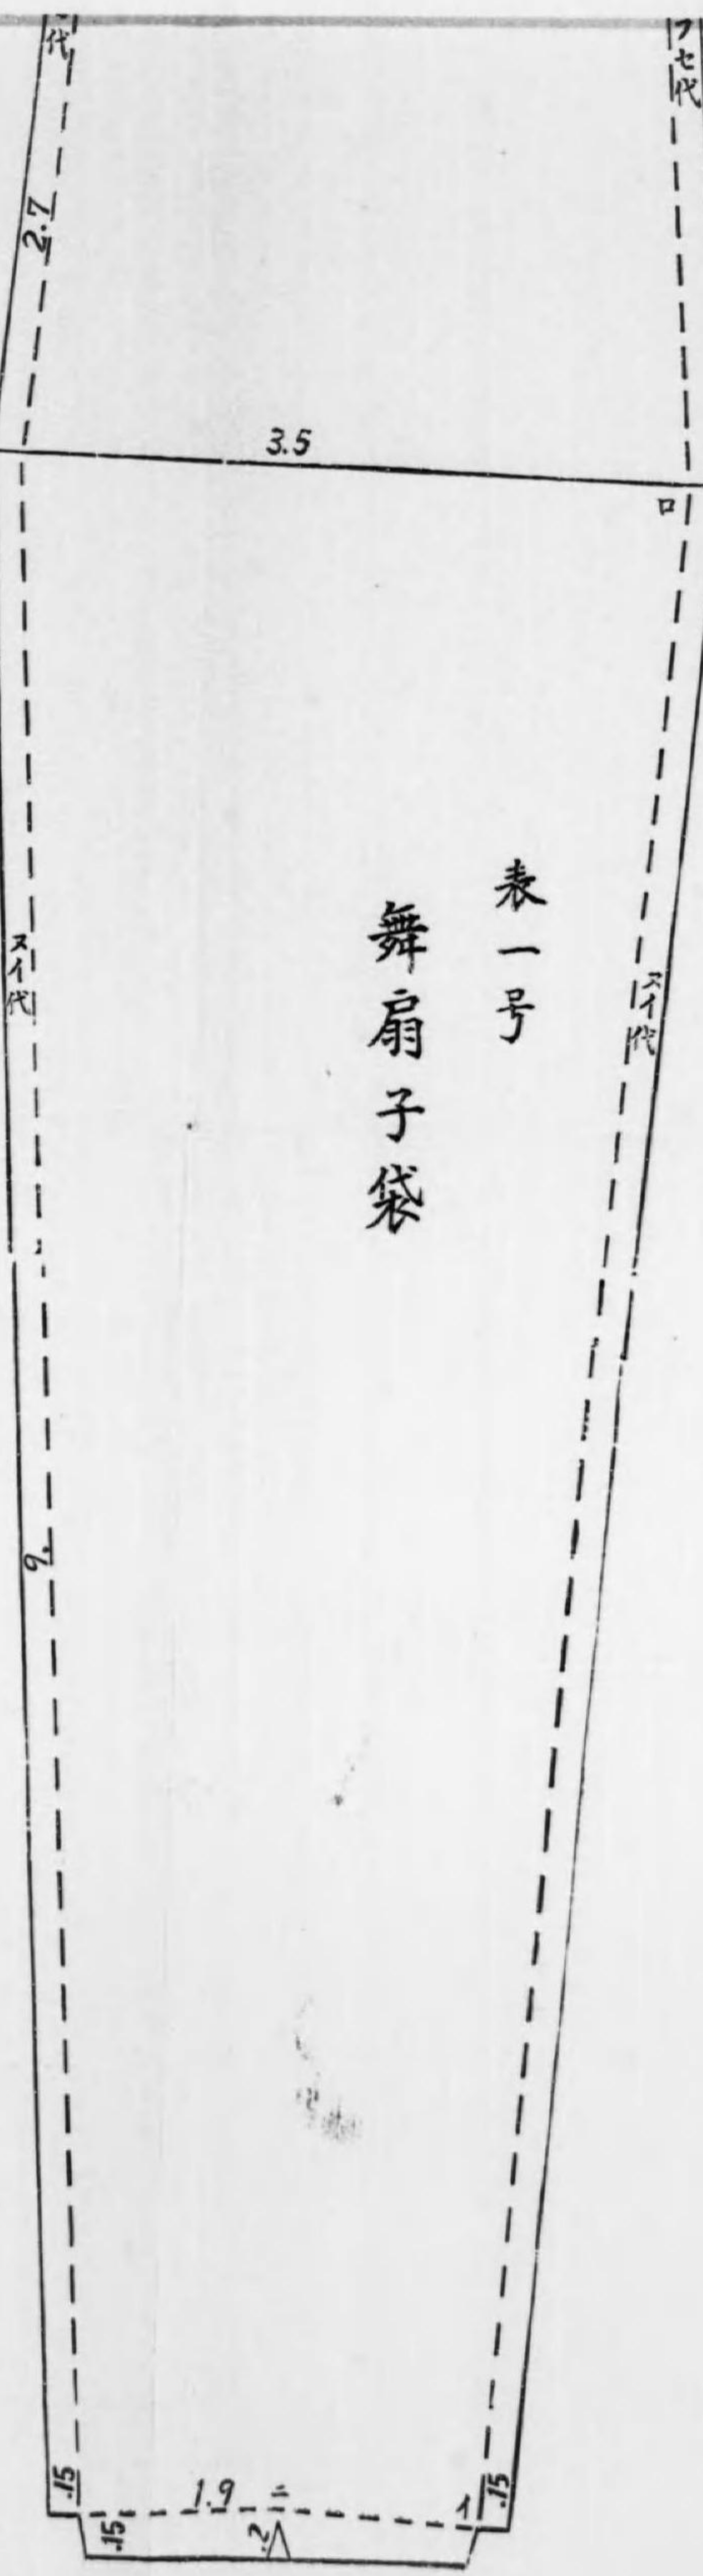 代
フセ代
2.7
3.5
ロ
表一号
舞扇子袋
スイ代
スイ代
9.
.15
1.9
ニ
イ
.15
.15
.2